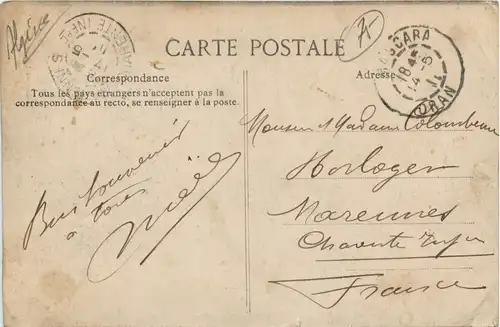 Algérie
CARTE POSTALE
Correspondance
Tous les pays étrangers n'acceptent pas la
correspondance au recto, se renseigner à la poste.
Adresse
MASCARA
18 45
14 -5
11
ORAN
CHARENTE INFRE
Bon Souvenir
à tous
Noël
Monsieur & Madame Colombeau
Horloger
Marennes
Charente Infre
France